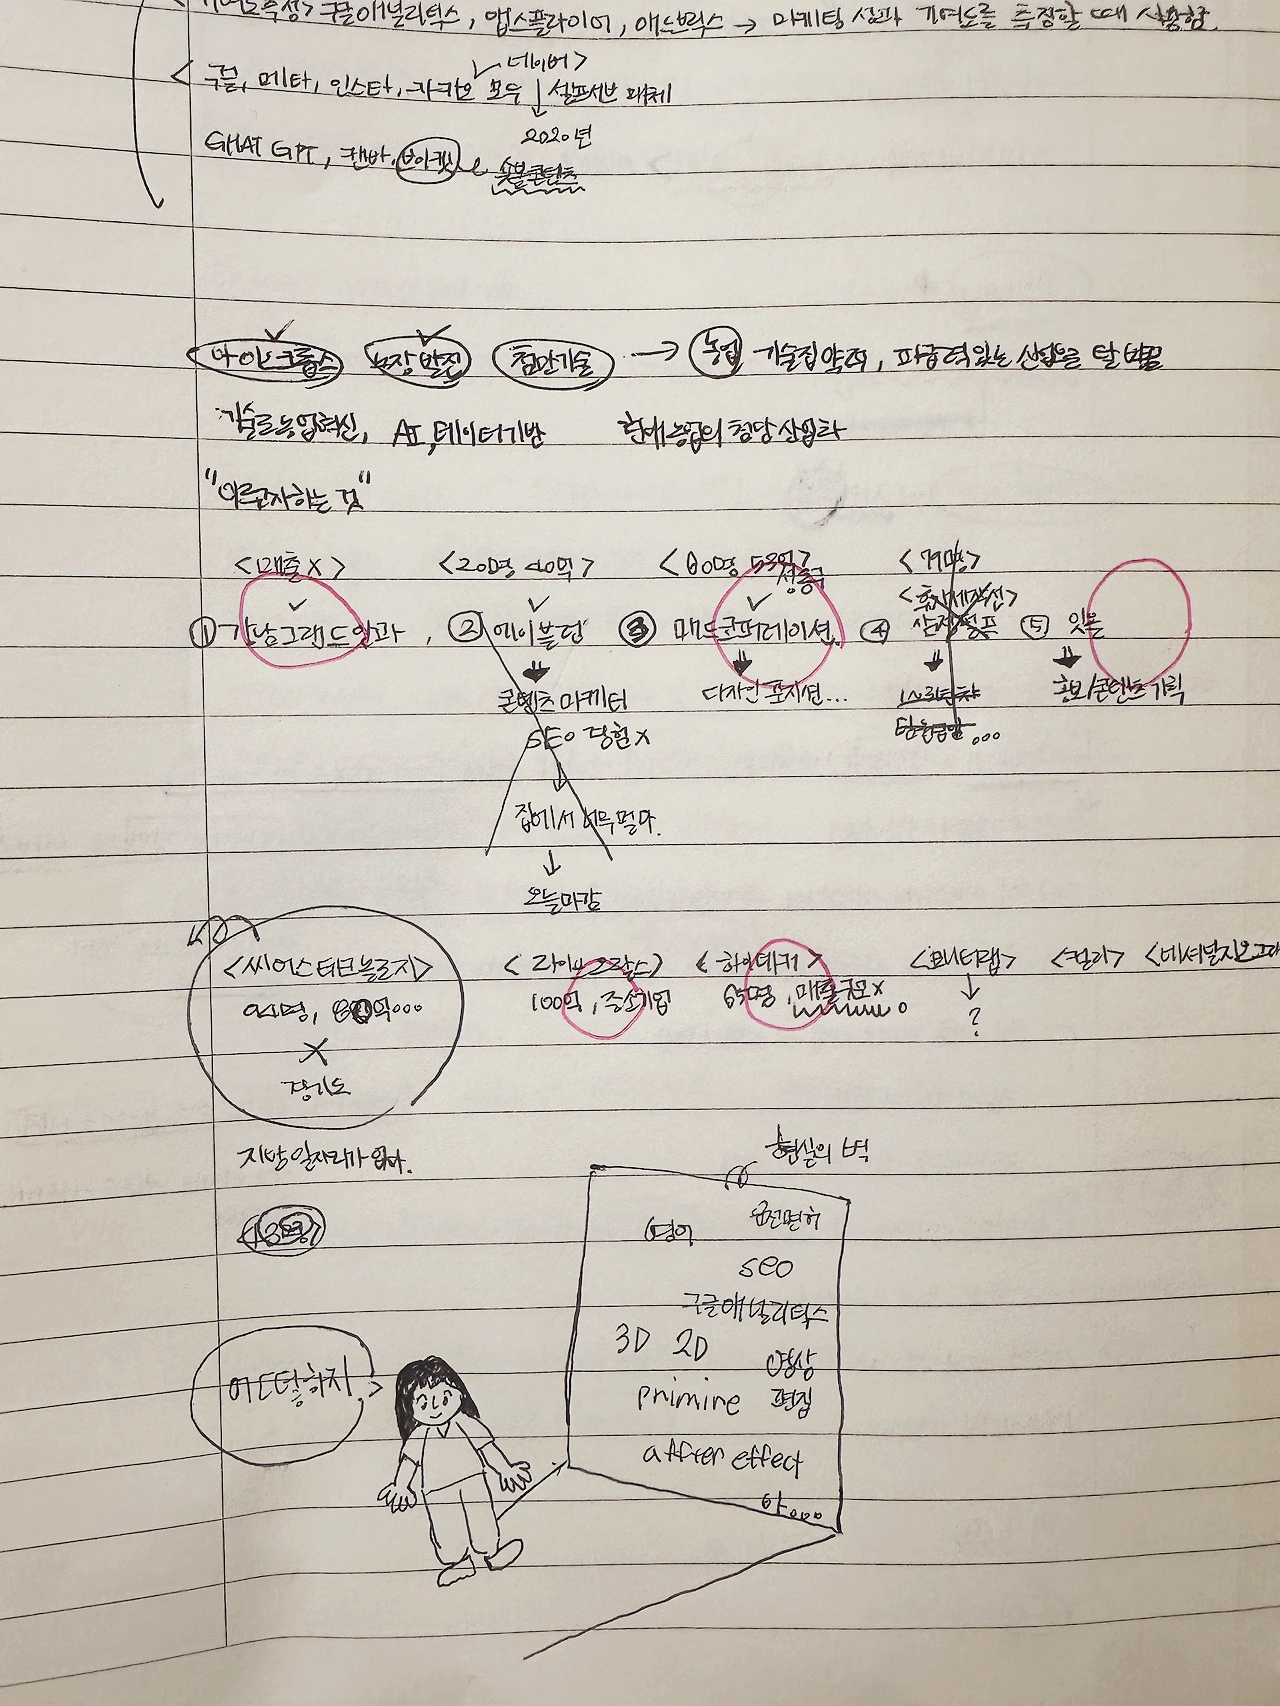 구글애널리틱스, 앱스플라이어, 애드브릭스 → 마케팅 성과 기여도를 측정할 때 사용함.
네이버>
< 구글, 메타, 인스타, 카카오 모두 ↓ 셀프서브 매체
2020년
GHAT GPT, 캔바,
숏폼콘텐츠
아이오크롭스 농장 발전 첨단기술 → 농업 기술집약적, 파급력있는 산업을 탈바꿈
기술로농업혁신, AI, 데이터기반 한매 농업의 첨단 산업화
"이루고자하는 것"
<매출 X> <20명 40억> <80명 53억> <79명>
성동구
<휴자세작선>
① 강남그랜드안과, ② 에이블런 ③ 매드코퍼레이션. ④ ⑤ 잇올
콘텐츠 마케터 디자인 포지션... 홍보/콘텐츠 기획
SEO 경험 X
↓
집에서 너무 멀다.
↓
오늘마감
<씨어스테크놀로지> <라이브오랄스> <하이데커> <모니터랩> <컬리> <네셔널지오그래
94명, 80억... 100억, 중소기업 65명, 매출규모x. ↓
X ?
경기도
지방 일자리가 없다.
현실의 벽
영어 운전면허
seo
구글애널리틱스
3D 2D 영상
primire 편집
after effect
아...
어떡하지.